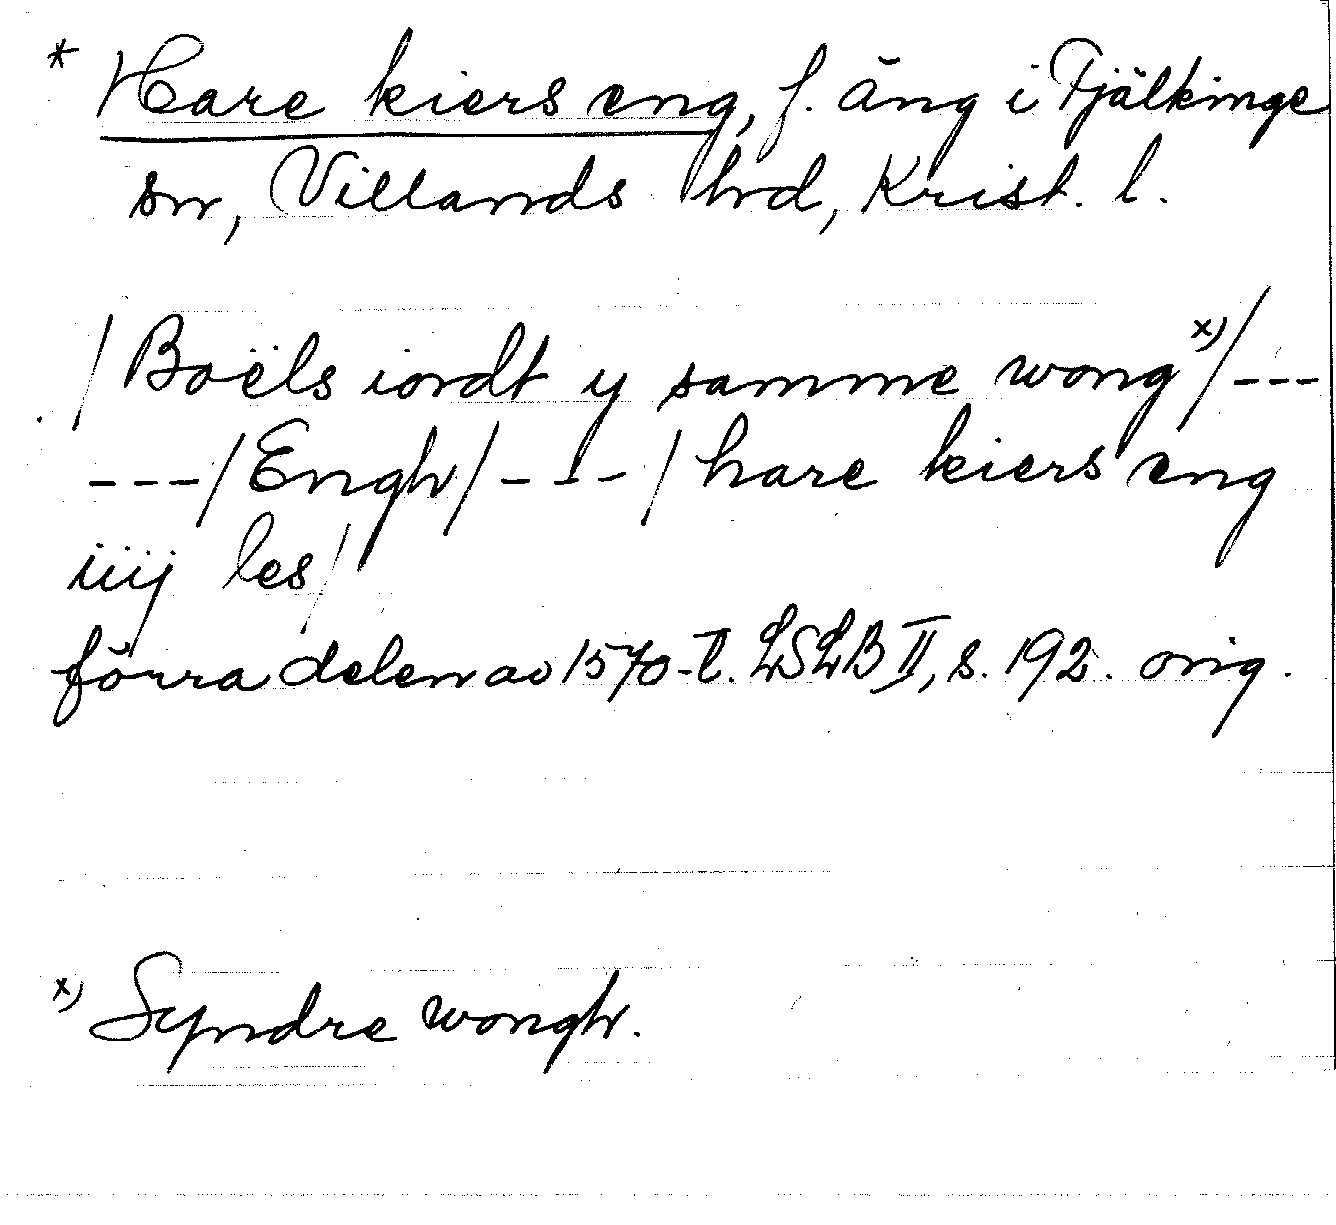 * Hare kiers eng, f. äng i Fjälkinge
sn, Villands hrd, Krist. l.
/Boëls iordt y samme wong x)/---
---/Engh/---/hare kiers eng
iiij les/
förra delen av 1570-t. LSLB II, s. 192. orig.
x) Syndre wongh.